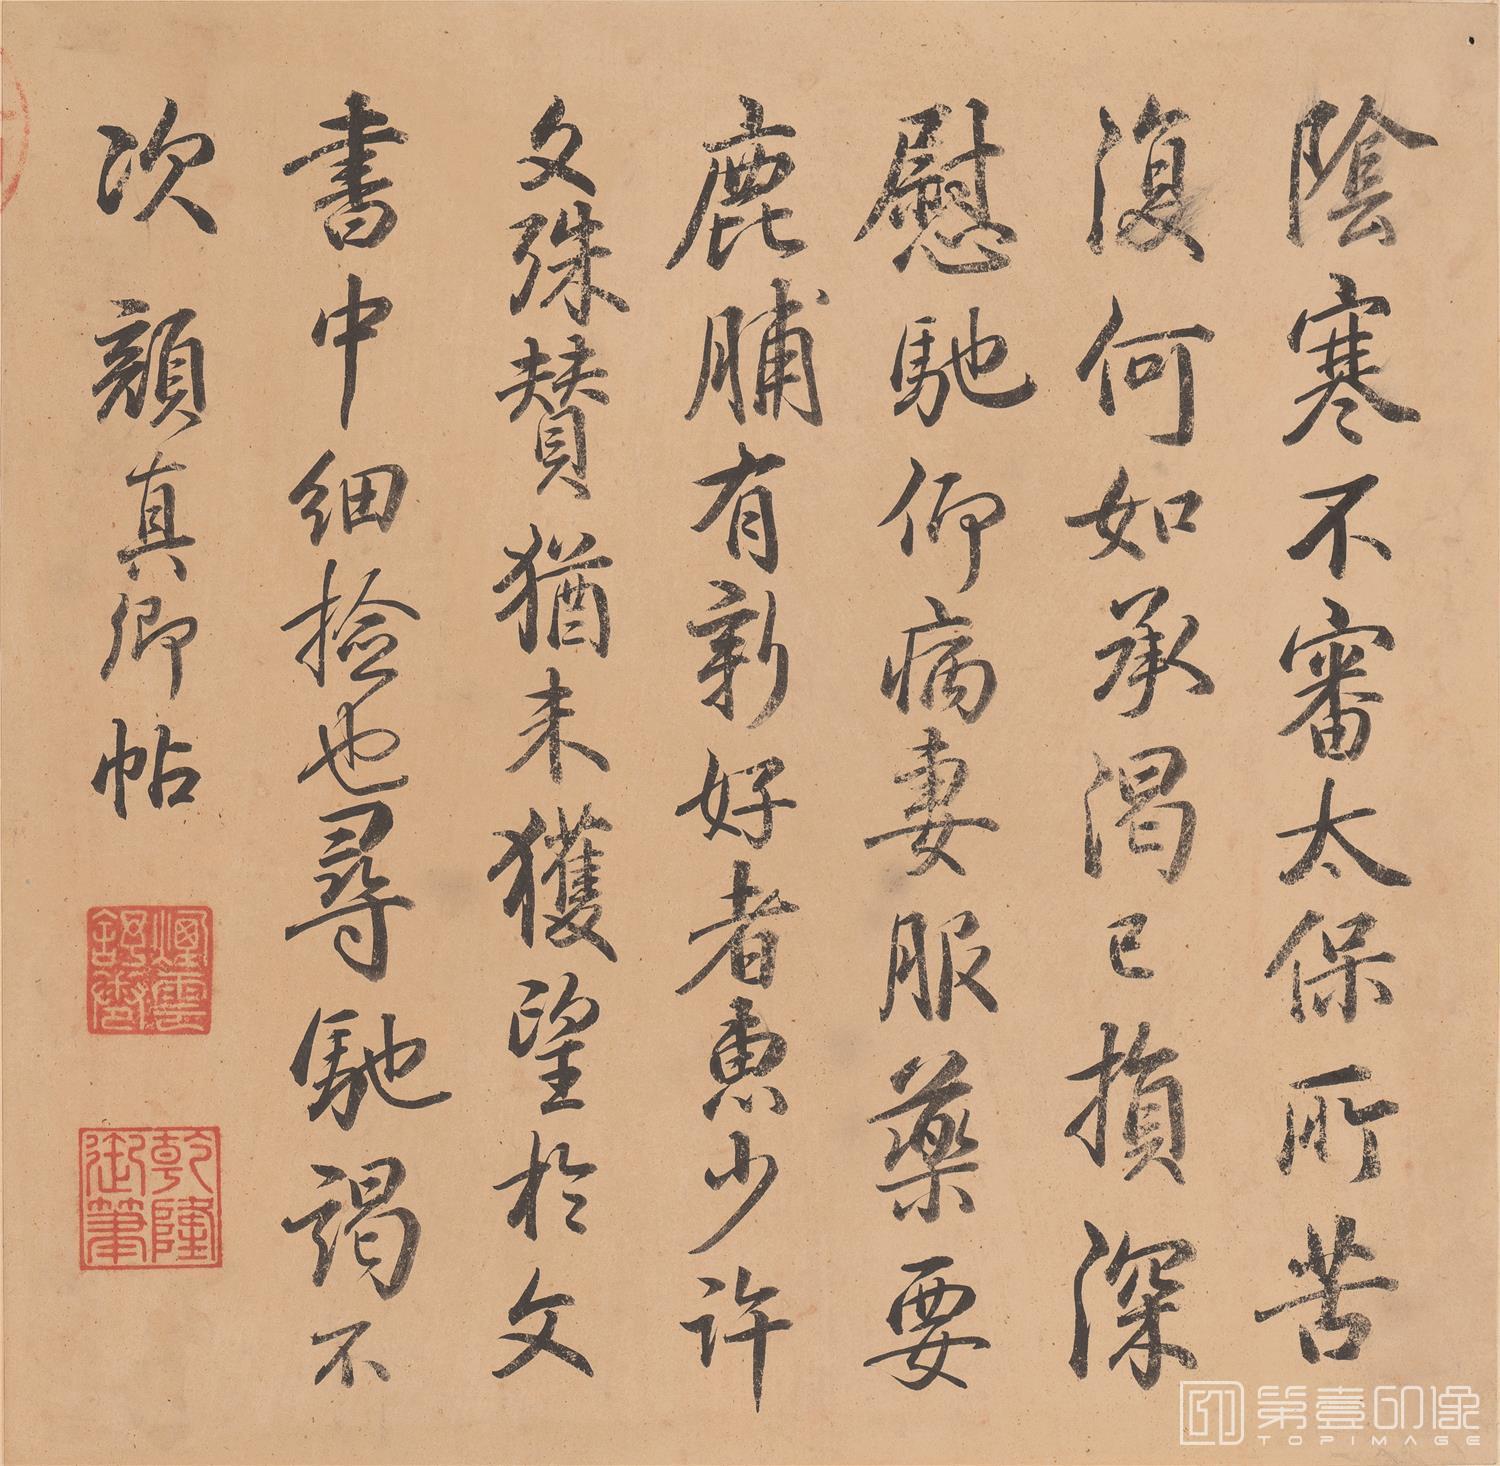 陰寒不審太保所苦
復何如承渴已損深
慰馳仰病妻服藥要
鹿脯有新好者惠少許
文殊賛猶未獲望於文
書中細撿也尋馳謁不
次 顔真卿帖
煙雲
乾隆
御筆
第壹印像
TOPIMAGE